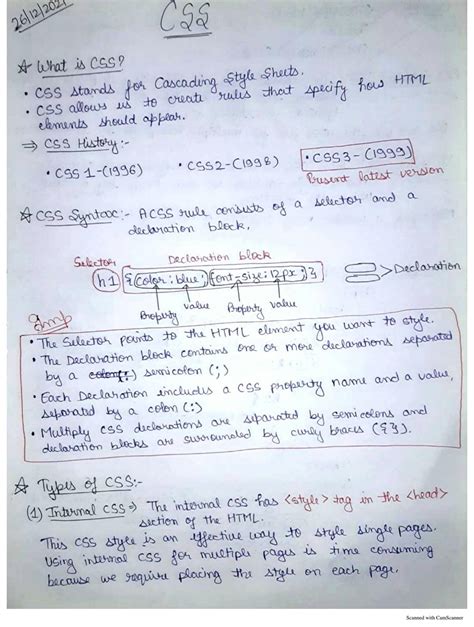 26/12/2021
CSS
☆ What is CSS?
• CSS stands for Cascading Style Sheets.
• CSS allows us to create rules that specify how HTML
elements should appear.
⇒ CSS History:-
• CSS 1-(1996) • CSS2-(1998) • CSS3-(1999)
Present latest version
☆ CSS Syntax:- A CSS rule consists of a selector and a
declaration block.
Selector Declaration block
h1 {color: blue; font-size: 12px;} > Declaration
Property value Property value
Imp
• The Selector points to the HTML element you want to style.
• The Declaration block contains one or more declarations separated
by a semicolon (;)
• Each Declaration includes a CSS property name and a value,
separated by a colon (:)
• Multiply CSS declarations are separated by semicolons and
declaration blocks are surrounded by curly braces ({}).
☆ Types of CSS:-
(1) Internal CSS ⇒ The internal CSS has <style> tag in the <head>
section of the HTML.
This CSS style is an effective way to style single pages.
Using internal CSS for multiple pages is time consuming
because we require placing the style on each page.
Scanned with CamScanner